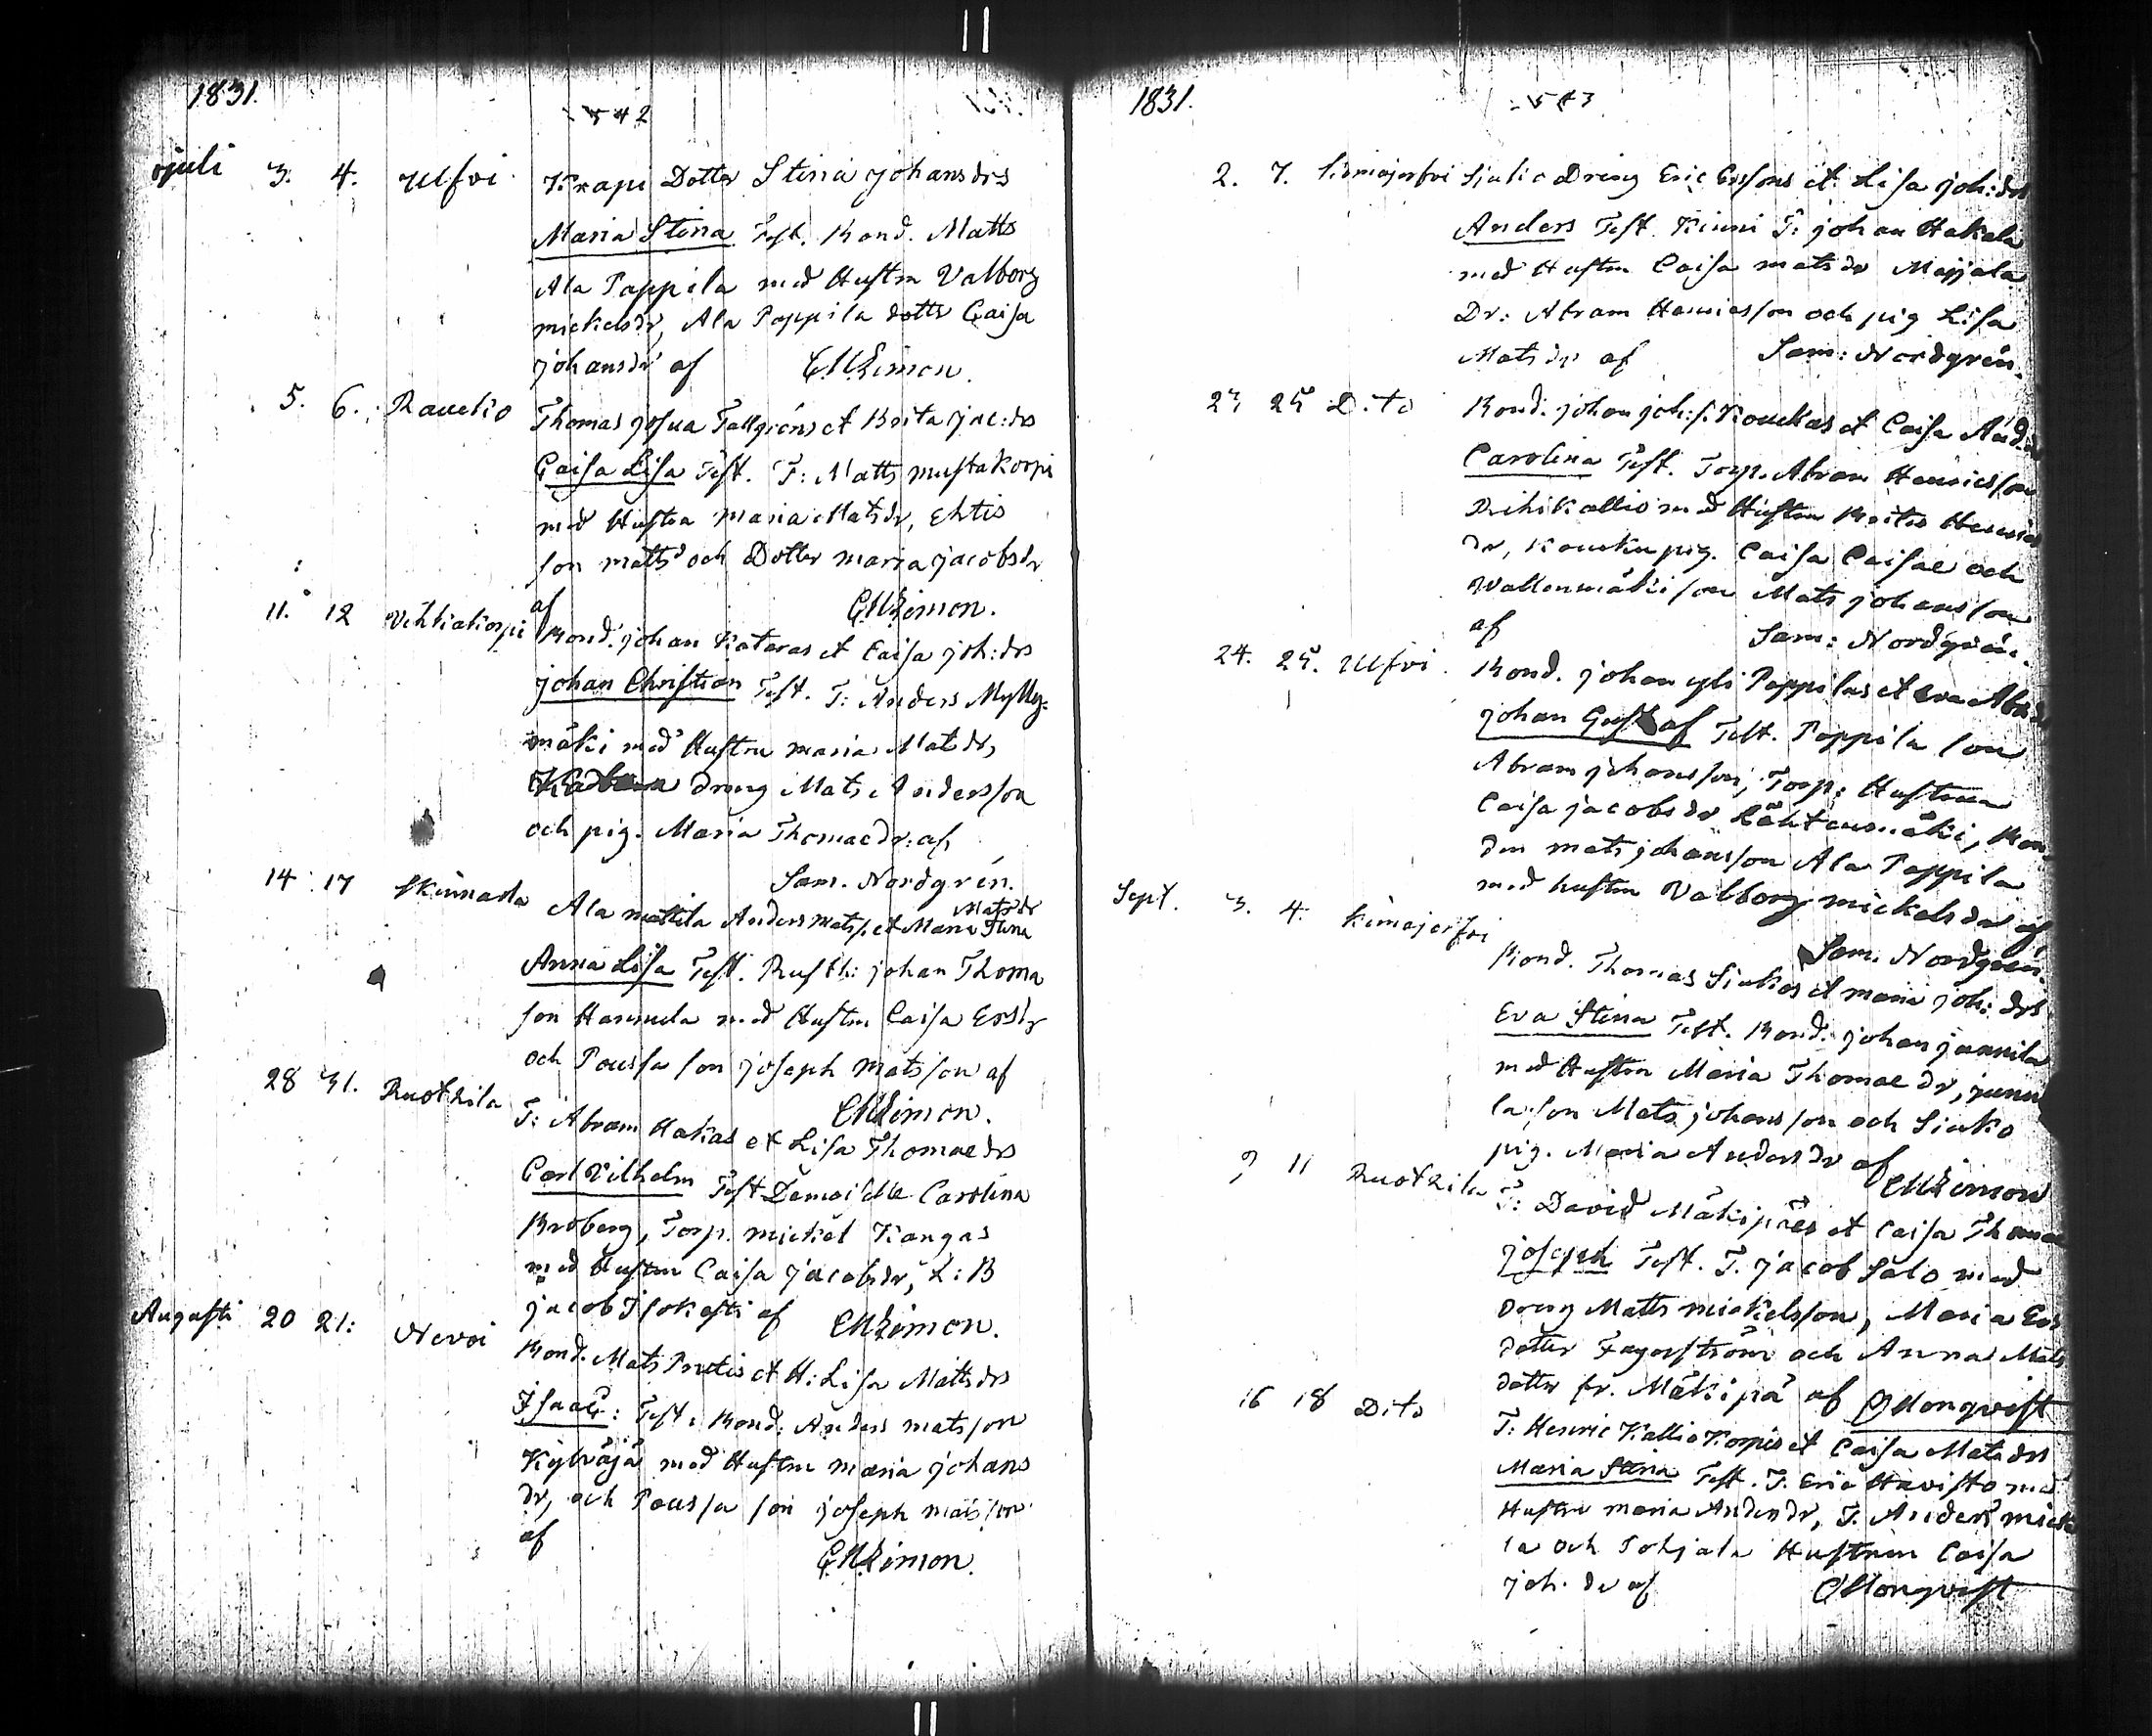 1831.
542
juli 3. 4. Ulfvi Krapi Dotter Stina johansdrs
Maria Stina Test. Bond. Matts
Ala Pappila med Hustru Valborg
mickelsdr, Ala Pappila dotter Caisa
johansdr af CMLimon.
5. 6. Rauckio Thomas josua Tallgréns et Brita jac:drs
Caisa Lisa Test. T: Matts mustakorpi
med Hustru maria Matsdr, Ehtis
son matts och Dotter maria jacobsdr
af CMLimon.
11. 12 Vehkiakorpi Bond. johan Kataras et Caisa joh:drs
johan Christian Test. T: Anders Mylly-
mäki med Hustru maria Matsdr,
dreng Mats Andersson
och pig. Maria Thomaedr: af
Sam. Nordgrén.
14 17 Skinnarla Ala mattila Anders Mats s. et Maria Stina Matsdr
Anna Lisa Test. Rusth: johan Thoma
son Hannula med Hustru Caisa Ersdr
och Poussa son joseph Matsson af
CMLimon.
28 31. Ruotzila T: Abram Hakas et Lisa Thomaedrs
Carl Vilhelm Test Demoiselle Carolina
Broberg, Torp. mickel Kangas
med Hustru Caisa jacobsdr, L: B
jacob Isokesti af CMLimon.
Augusti 20 21: Nervoi Bond. Mats Prettis et H: Lisa Mattsdrs
Isaac: Test: Bond: Anders matsson
Kylväjä med Hustru maria johans
dr, och Poussa son joseph matsson
af CMLimon.
1831.
543
2. 7. Kimajerfvi Siukio Dreng Eric Erssons et Lisa joh:drs
Anders Test. Kinni T: johan Hakala
med Hustru Caisa matsdr Majjala
Dr: Abram Henricsson och pig Lisa
Matsdr af Sam: Nordgrén.
23 25 Dito Bond. johan joh:s. Kouckas et Caisa And:
Carolina Test. Torp. Abram Henricsson
Rihikallio med Hustru Brita Henrics
dr, Koucku pig. Caisa Caisae och
Wallenmäki son Mats johansson
af Sam: Nordgrén.
24. 25. Ulfvi Bond. johan yli Pappilas et Eva Abr
johan Gustaf Test. Pappila son
Abram johansson, Torp: Hustrun
Caisa jacobsdr Lähteenmäki, Bon
den mats johansson Ala Pappila
med hustru Valborg mickelsdr af
Sam. Nordgren.
Sept. 3. 4. Kimajerfvi Bond. Thomas Siukios et maria joh: drs
Eva Stina Test. Bond. johan junnila
med Hustru Maria Thomae dr, junni
la son Mats johansson och Siukio
pig. Maria Andersdr af CMLimon
9 11 Ruotzila T: David Mäkipäes et Caisa Thomae
joseph Test. T. jacob Salo med
dreng Matts mickelsson, Maria Ers
dotter Fagerström och Anna Mats
dotter fr. Mäkipä af CMonqvist
16 18 Dito T: Henric Kalliokorpis et Caisa Matsdrs
Maria Stina Test. T. Eric Havisto med
Hustru maria Andersdr, T. Anders micko
la och Pohjala Hustrun Caisa
joh. dr af CMonqvist